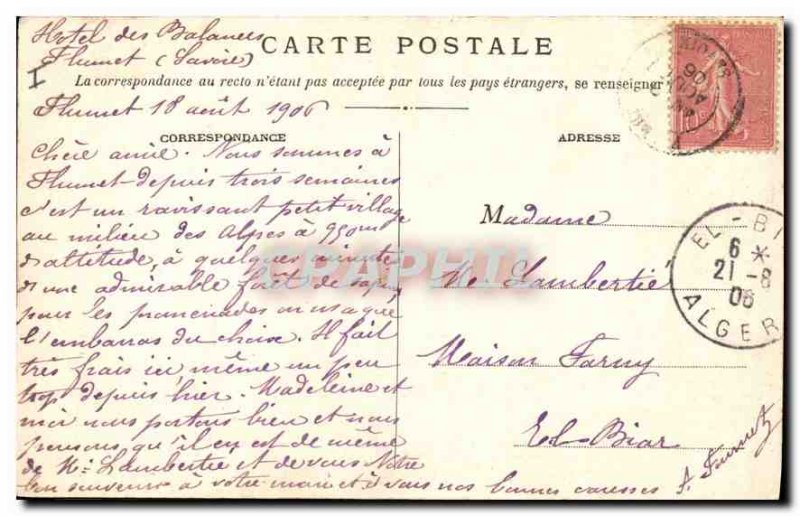 Hotel des Balances
Flumet (Savoie)
I
CARTE POSTALE
La correspondance au recto n'étant pas acceptée par tous les pays étrangers, se renseigner
Flumet 18 août 1906
CORRESPONDANCE
ADRESSE
Chère amie. Nous sommes à
Flumet depuis trois semaines
c'est un ravissant petit village
au milieu des Alpes à 950m
d'altitude, à quelques minutes
d'une admirable forêt de sapins
pour les promenades on n'a que
l'embarras du choix. Il fait
très frais ici même un peu
trop depuis hier. Madeleine et
moi nous portons bien et nous
pensons qu'il en est de même
de Me Lambertie et de vous Notre
bon souvenir à votre mari et à vous nos bonnes caresses
Madame
Me Lambertie
Maison Farny
El-Biar
EL-BI
6 *
21-8
06
ALGER
APHAPHIL